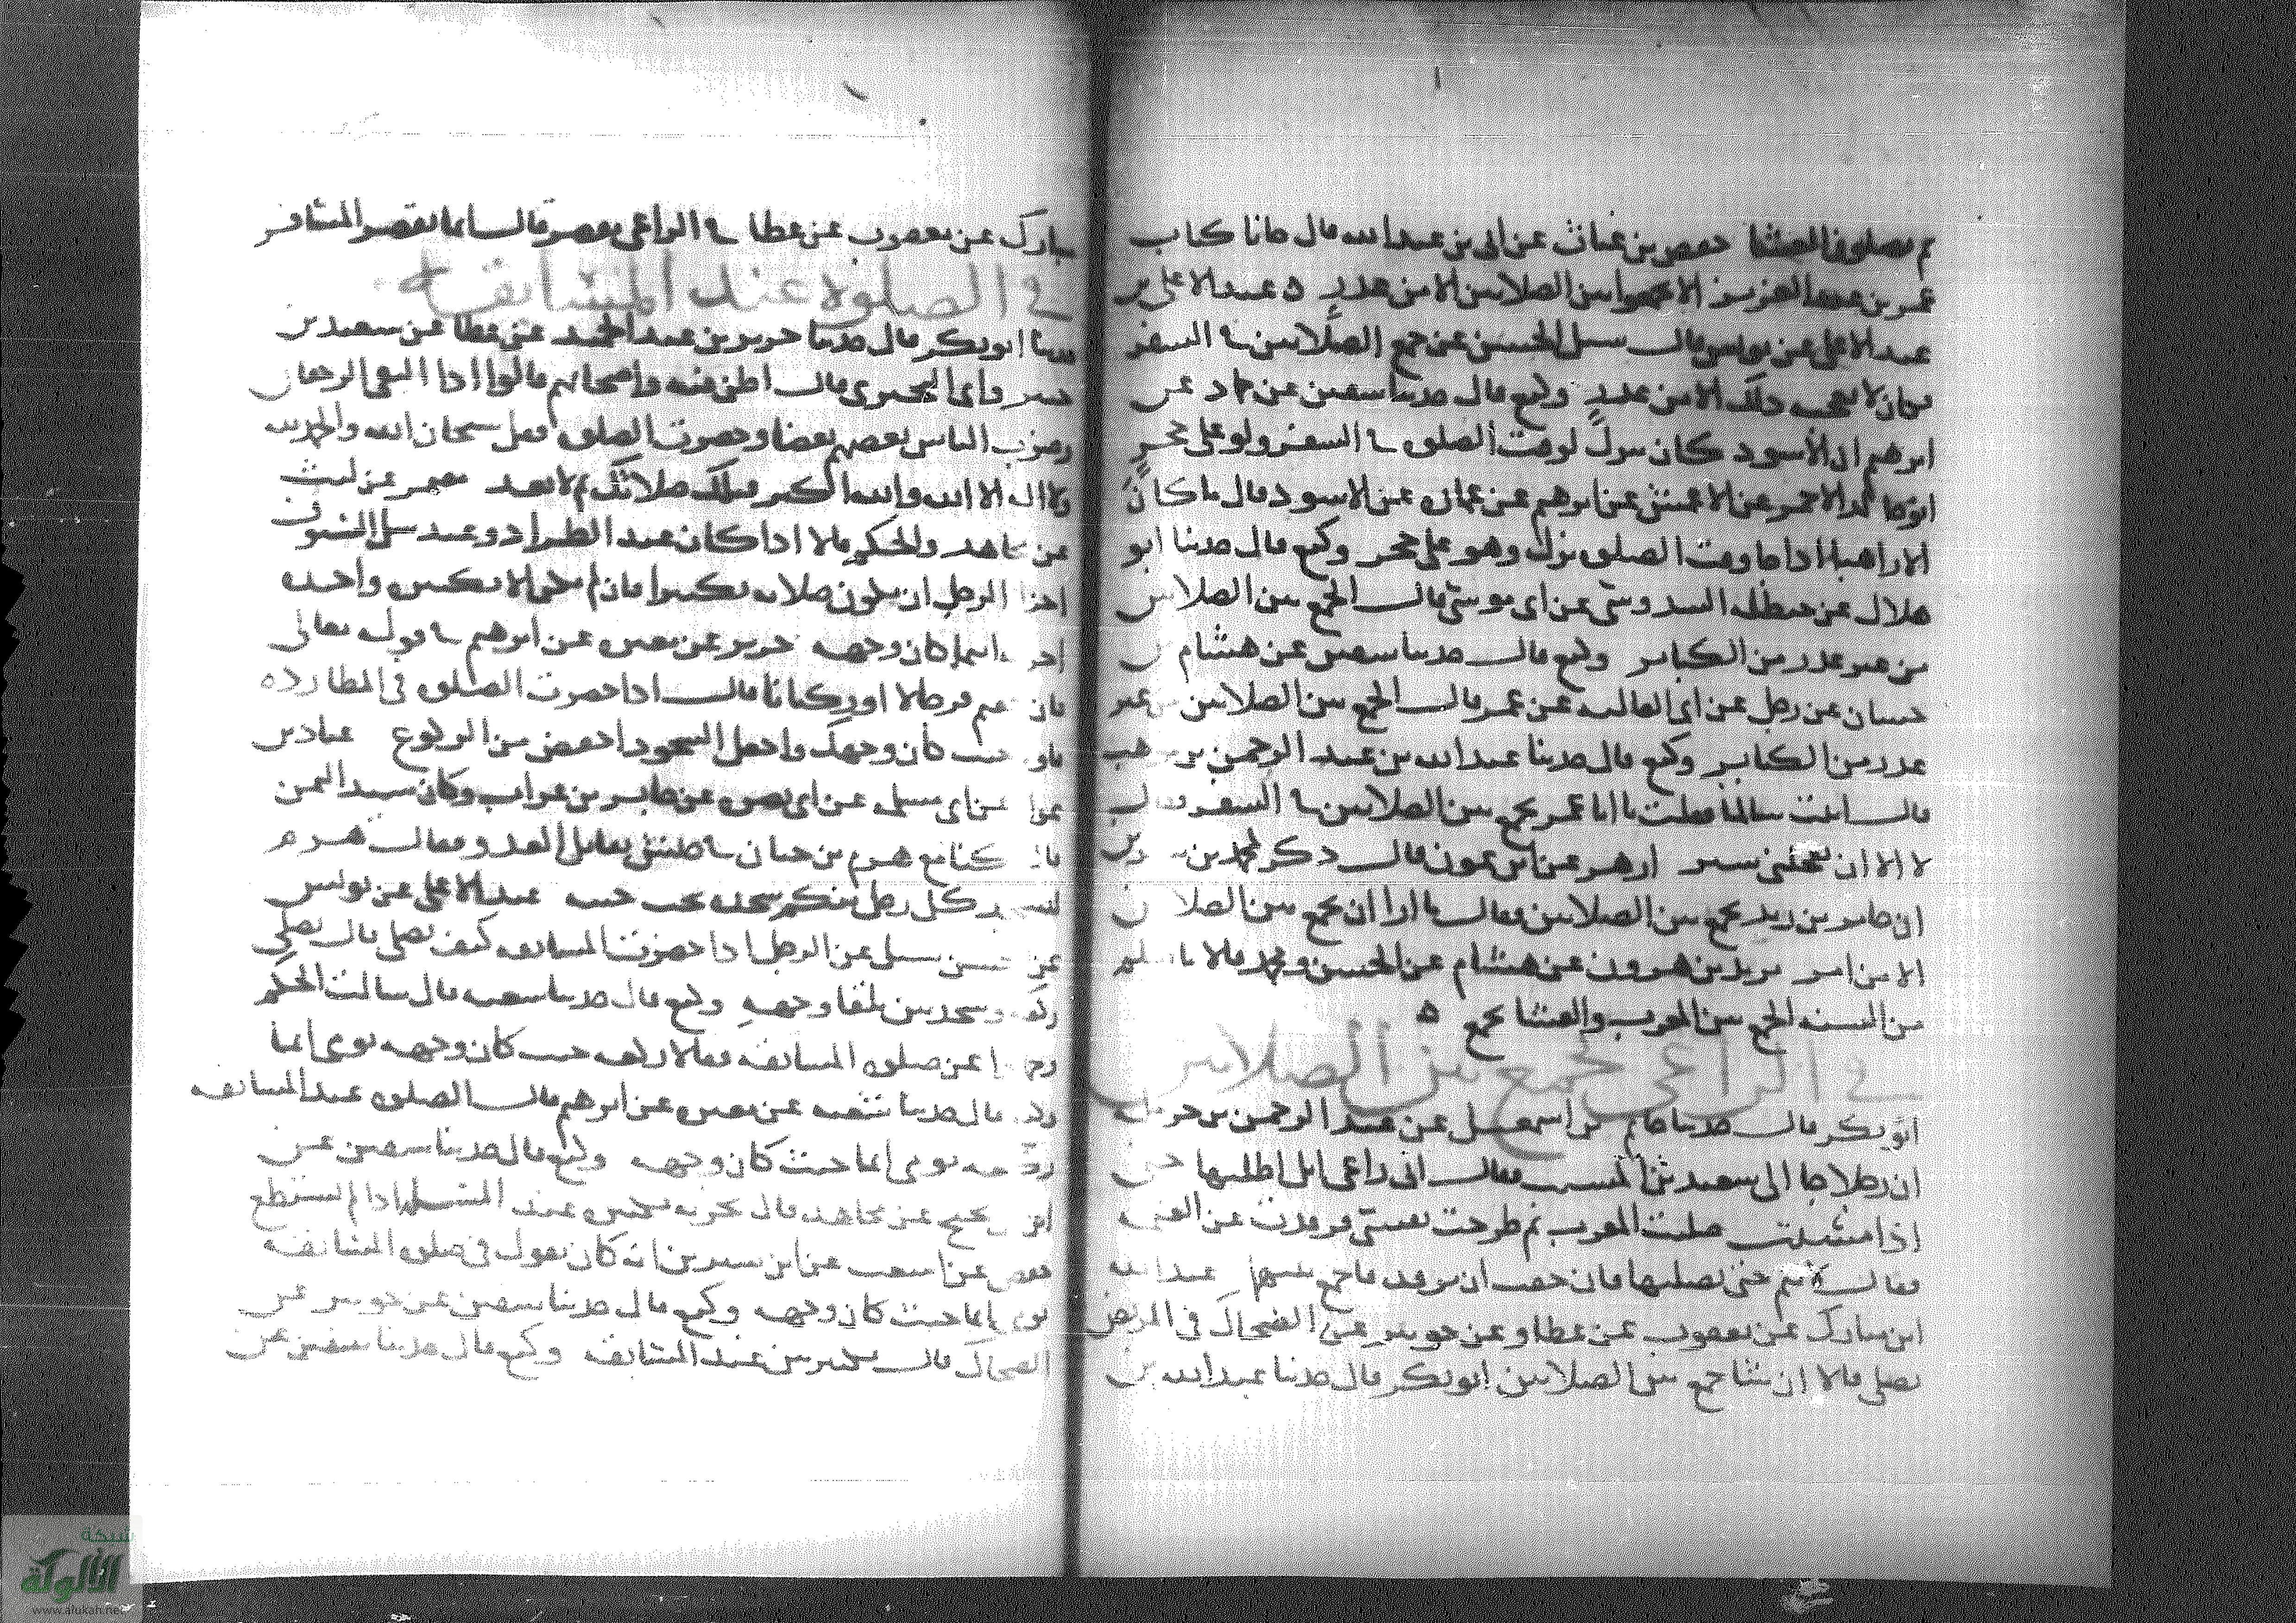 ثم يصلون العشا حفص بن غياث عن ابي بن عبد الله قال جانا كتاب
عمر بن عبد العزيز الا تجمعوا بين الصلاتين الا من عذر ه عبد الاعلى بن
عبد الاعلى عن يونس قال سئل الحسن عن جمع الصلاتين في السفر
فكان لا يعجبه ذلك الا من عذر وكيع قال حدثنا سفين عن حماد عن
ابرهيم ان الاسود كان ينزل لوقت الصلوة في السفر ولو على حجر
ابو خالد الاحمر عن الاعمش عن ابرهيم عن عمارة عن الاسود قال ما كان
الا راهبا اذا جا وقت الصلوة نزل وهو على حجر وكيع قال حدثنا ابو
هلال عن حنظلة السدوسي عن ابي موسى قال الجمع بين الصلاتين
من غير عذر من الكباير وكيع قال حدثنا سفين عن هشام بن
حسان عن رجل عن ابي العالية عن عمر قال الجمع بين الصلاتين من غير
عذر من الكباير وكيع قال حدثنا عبد الله بن عبد الرحمن بن موهب
قال سالما فقلت يا ابا عمر يجمع بين الصلاتين في السفر فقال
لا الا ان تعجلني سير ازهر عن ابن عون قال ذكر لمحمد بن سيرين
ان جابر بن زيد يجمع بين الصلاتين فقال ما ارا ان يجمع بين الصلاتين
الا من امر يزيد بن هرون عن هشام عن الحسن ومحمد قالا ما نعلم
من السنة الجمع بين المغرب والعشا بجمع ه
في الراعي يجمع بين الصلاتين
ابو بكر قال حدثنا حاتم بن اسمعيل عن عبد الرحمن بن حرملة
ان رجلا جا الى سعيد بن المسيب فقال اني راعي ابل احلبها حتى
اذا امسيت صليت المغرب ثم طرحت نفسي فرقدت عن العتمة
فقال لا تنم حتى تصليها فان خفت ان ترقد فاجمع بينهما عبد الله
ابن مبارك عن يعقوب عن عطا وعن جويبر عن الضحاك في المريض
يصلي قالا ان شا جمع بين الصلاتين ابو بكر قال حدثنا عبد الله بن
مبارك عن يعقوب عن عطا في الراعي يقصر قال انما يقصر المسافر
في الصلوة عند المسايفة
حدثنا ابو بكر قال حدثنا جرير بن عبد الحميد عن عطا عن سعيد بن
جبير وابي البختري قال اظن فيه واصحابهم قالوا اذا التقى الزحفان
وضرب الناس بعضهم بعضا وحضرت الصلوة فقل سبحان الله والحمد لله
ولا اله الا الله والله اكبر فتلك صلاتك ثم لا تعد معتمر عن ليث
عن مجاهد والحكم قالا اذا كان عند الطراد وعند سل السيوف
اجزا الرجل ان تكون صلاته تكبيرا فان لم يكن الا تكبيرة واحدة
اجزته اينما كان وجهه جرير عن مغيرة عن ابرهيم في قوله تعالى
فان خفتم فرجالا او ركبانا قال اذا حضرت الصلوة في المطاردة
فاوم حيث كان وجهك واجعل السجود اخفض من الركوع عباد بن
عوام عن ابي مسلمة عن ابي نضرة عن جابر بن غراب وكان
قال كنا مع هرم بن حيان في جيش نقاتل العدو فقال هرم
ليسجد كل رجل منكم سجدة تحت جنته عبد الاعلى عن يونس
عن الحسن سئل عن الرجل اذا حضرت المسايفة كيف يصلي قال يصلي
ركعة وسجدتين تلقا وجهه وكيع قال حدثنا شعبة قال سالت الحكم
وحمادا عن صلوة المسايفة فقالا ركعة حيث كان وجهه يومي ايما
وكيع قال حدثنا شعبة عن مغيرة عن ابرهيم قال الصلوة عند المسايفة
ركعة يومي ايما حيث كان وجهه وكيع قال حدثنا سفين عن
ابن نجيح عن مجاهد قال تجزيه تكبيرة عند السلة اذا لم يستطع
حفص عن اشعث عن ابن سيرين انه كان يقول في صلوة المسايفة
يومي ايما حيث كان وجهه وكيع قال حدثنا سفين عن جويبر عن
الضحاك قال تكبيرتين عند المسايفة وكيع قال حدثنا سفين عن
شبكة
الألوكة
www.alukah.net